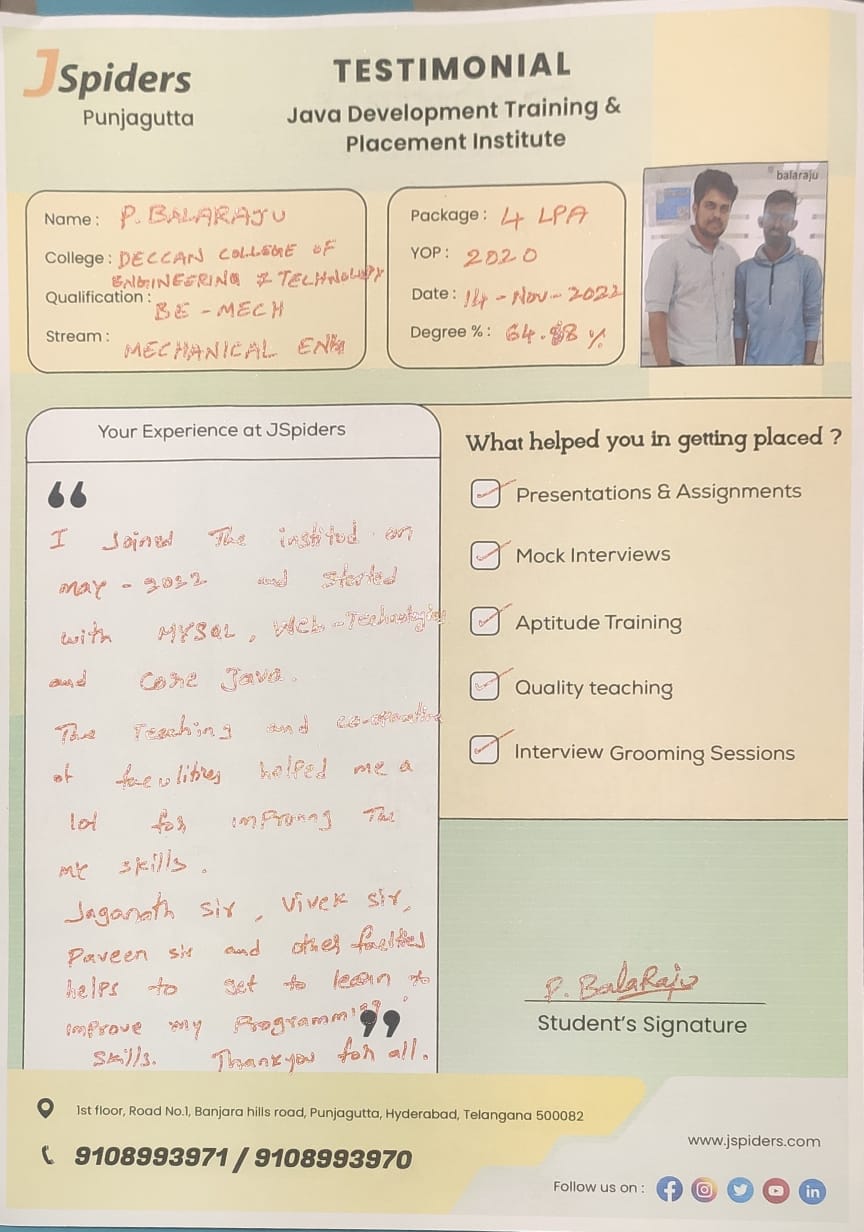 JSpiders
Punjagutta
TESTIMONIAL
Java Development Training &
Placement Institute
balaraju
Name : P. BALARAJU
College : DECCAN COLLEGE OF
ENGINEERING & TECHNOLOGY
Qualification :
BE - MECH
Stream :
MECHANICAL ENG
Package : 4 LPA
YOP : 2020
Date : 14 - Nov - 2022
Degree % : 64. %
Your Experience at JSpiders
“
I Joined The institud on
may - 2022 and started
with MYSQL, Web-Technologies
and Core Java.
The Teaching and co-operation
of faculities helped me a
lot for improving The
my skills.
Jaganath sir, Vivek sir,
Paveen sir and other faculties
helps to get to learn to
improve my Programming
Skills. Thankyou for all.
”
What helped you in getting placed ?
Presentations & Assignments
Mock Interviews
Aptitude Training
Quality teaching
Interview Grooming Sessions
P. BalaRaju
Student's Signature
1st floor, Road No.1, Banjara hills road, Punjagutta, Hyderabad, Telangana 500082
9108993971 / 9108993970
www.jspiders.com
Follow us on :